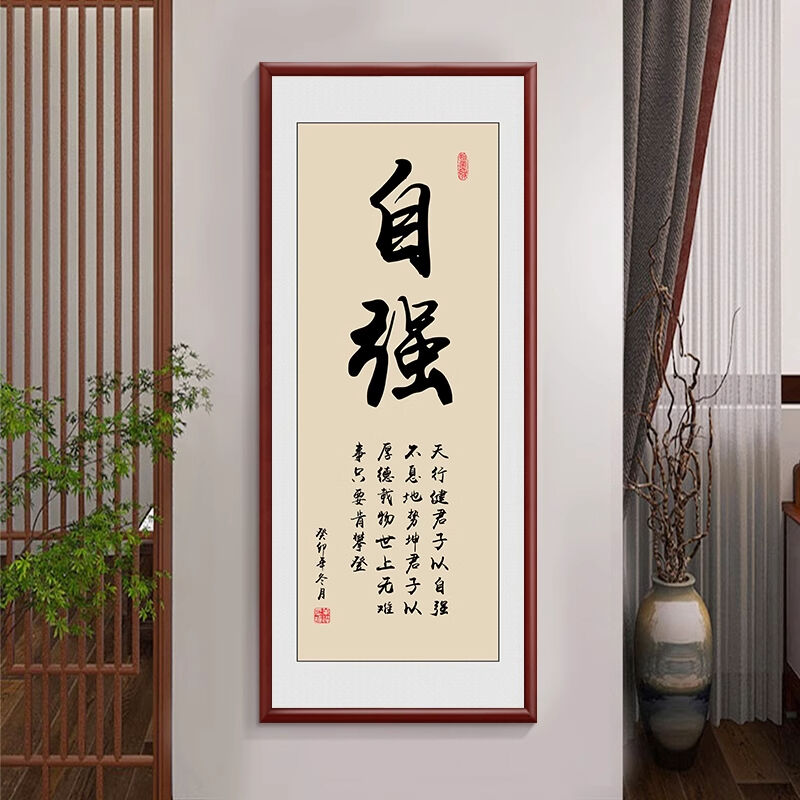 自强
天行健君子以自强
不息地势坤君子以
厚德载物世上无难
事只要肯攀登
癸卯年冬月